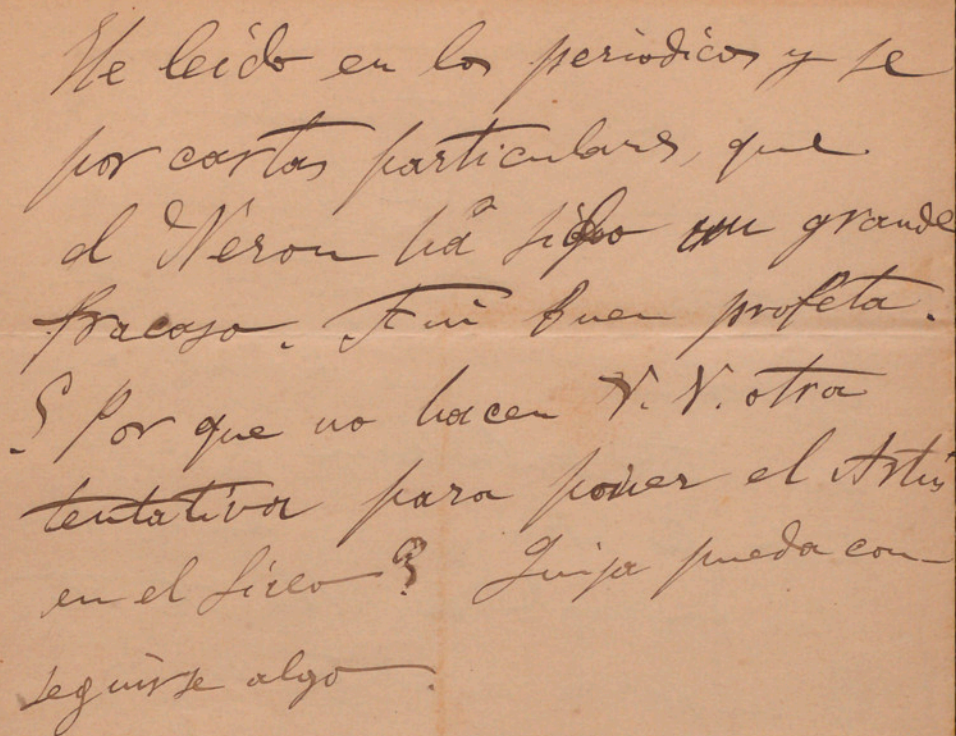 He leido en los periodicos y se
por cartas particulares, que
el Neron ha sido un grande
fracaso. Fui buen profeta.
¿Por que no hacen V. V. otra
tentativa para poner el Artús
en el Liceo? Quiza pueda con-
seguirse algo.